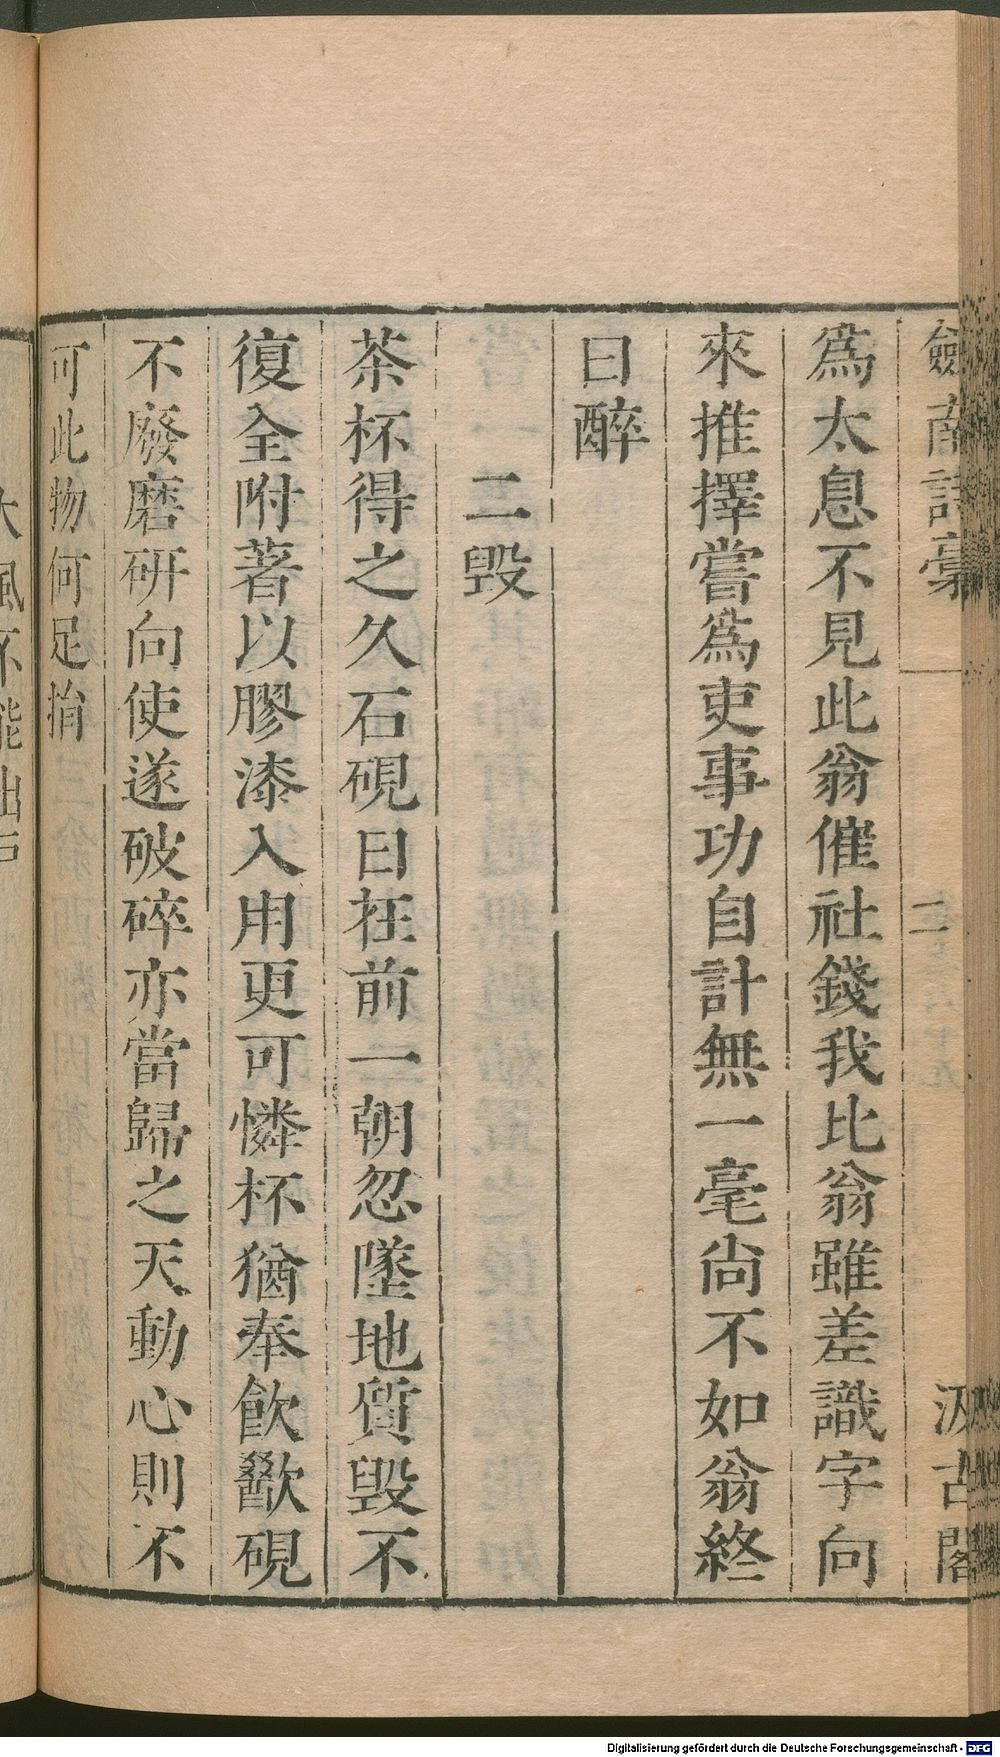 劍南詩稾 二 汲古閣
爲太息不見此翁催社錢我比翁雖差識字向
來推擇嘗爲吏事功自計無一毫尙不如翁終
日醉
二毁
茶杯得之久石硯日在前一朝忽墜地質毁不
復全附著以膠漆入用更可憐杯猶奉飮歠硯
不廢磨研向使遂破碎亦當歸之天動心則不
可此物何足捐
大風不能出戶
Digitalisierung gefördert durch die Deutsche Forschungsgemeinschaft - DFG